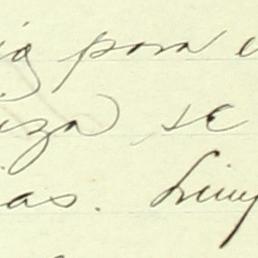 ia para e
iza se
as. Limp